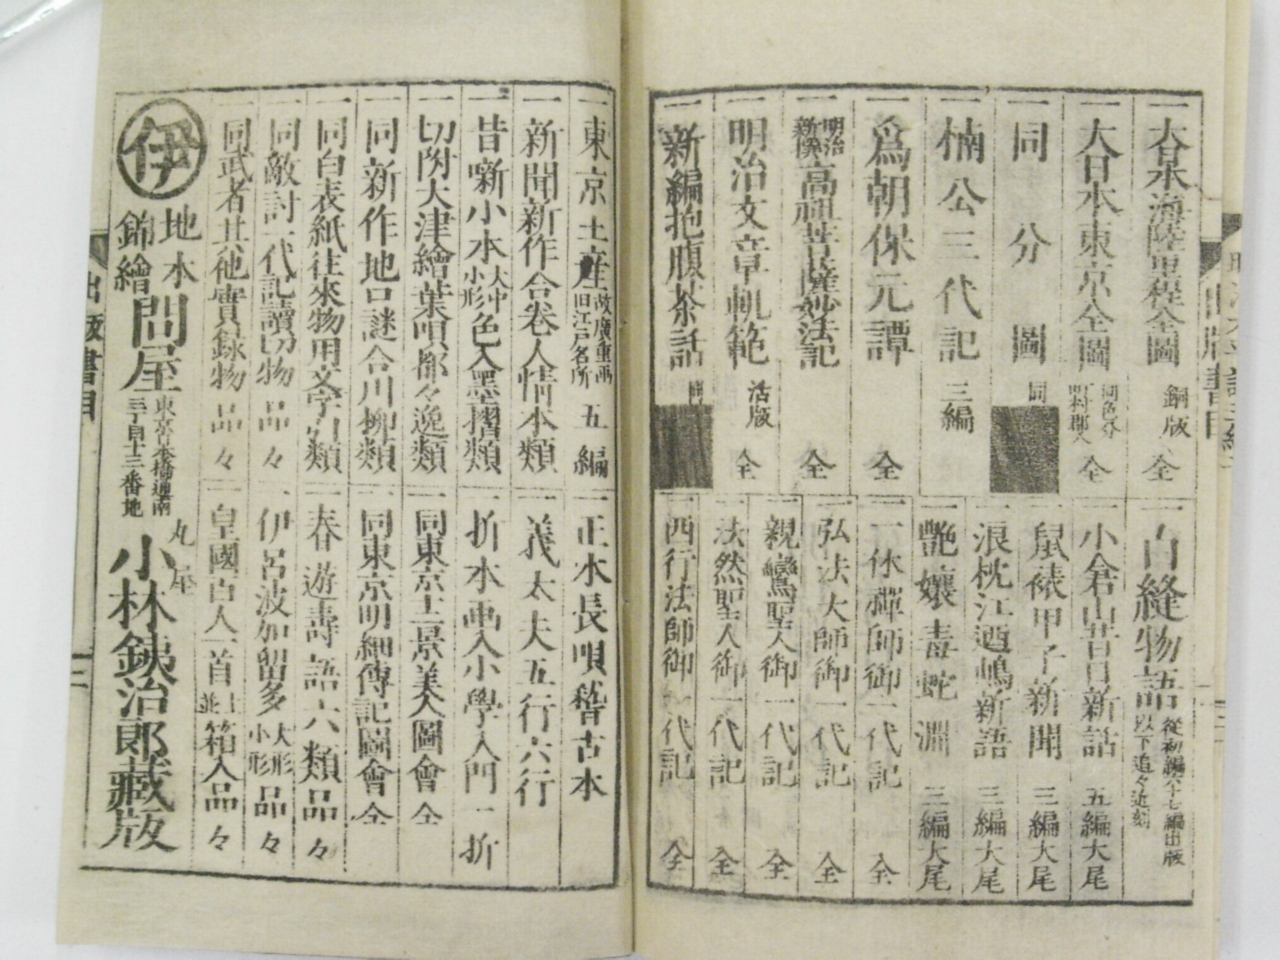 一大日本海陸里程全圖 銅版 全
一大日本東京全圖 同色外町村郡入 全
一同分圖 同
一楠公三代記 三編
一爲朝保元譚 全
一明治新撰高祖菩薩妙法記 全
一明治文章軌範 活版 全
一新編抱腹茶話
一白縫物語 從初編六十七編出版以下追々近刻
一小倉山昔日新話 五編大尾
一鼠裱甲子新聞 三編大尾
一浪枕江酒嶋新語 三編大尾
一艷孃毒蛇淵 三編大尾
一一休禪師御一代記 全
一弘法大師御一代記 全
一親鸞聖人御一代記 全
一法然聖人御一代記 全
一西行法師御一代記 全
一東京土産 故廣重画旧江戸名所 五編
一新聞新作合卷人情本類
一昔噺小本 大中小形 色入墨摺類
一切附大津繪葉唄都々逸類
一同新作地口謎合川柳類
一同白表紙往來物用文字引類
一同敵討一代記讀切物 品々
一同武者其他實録物 品々
一正本長唄稽古本
一義太夫五行六行
一折本画入小學入門一折
一同東京土景美人圖會 全
一同東京明細傳記圖會 全
一春遊壽語六類品々
一伊呂波加留多 大形小形 品々
一皇國百人一首 並上 箱入品々
伊
地本
錦繪
問屋
東京日本橋通南
三丁目十三番地
丸屋
小林鉄治郎藏版
出版書目
三